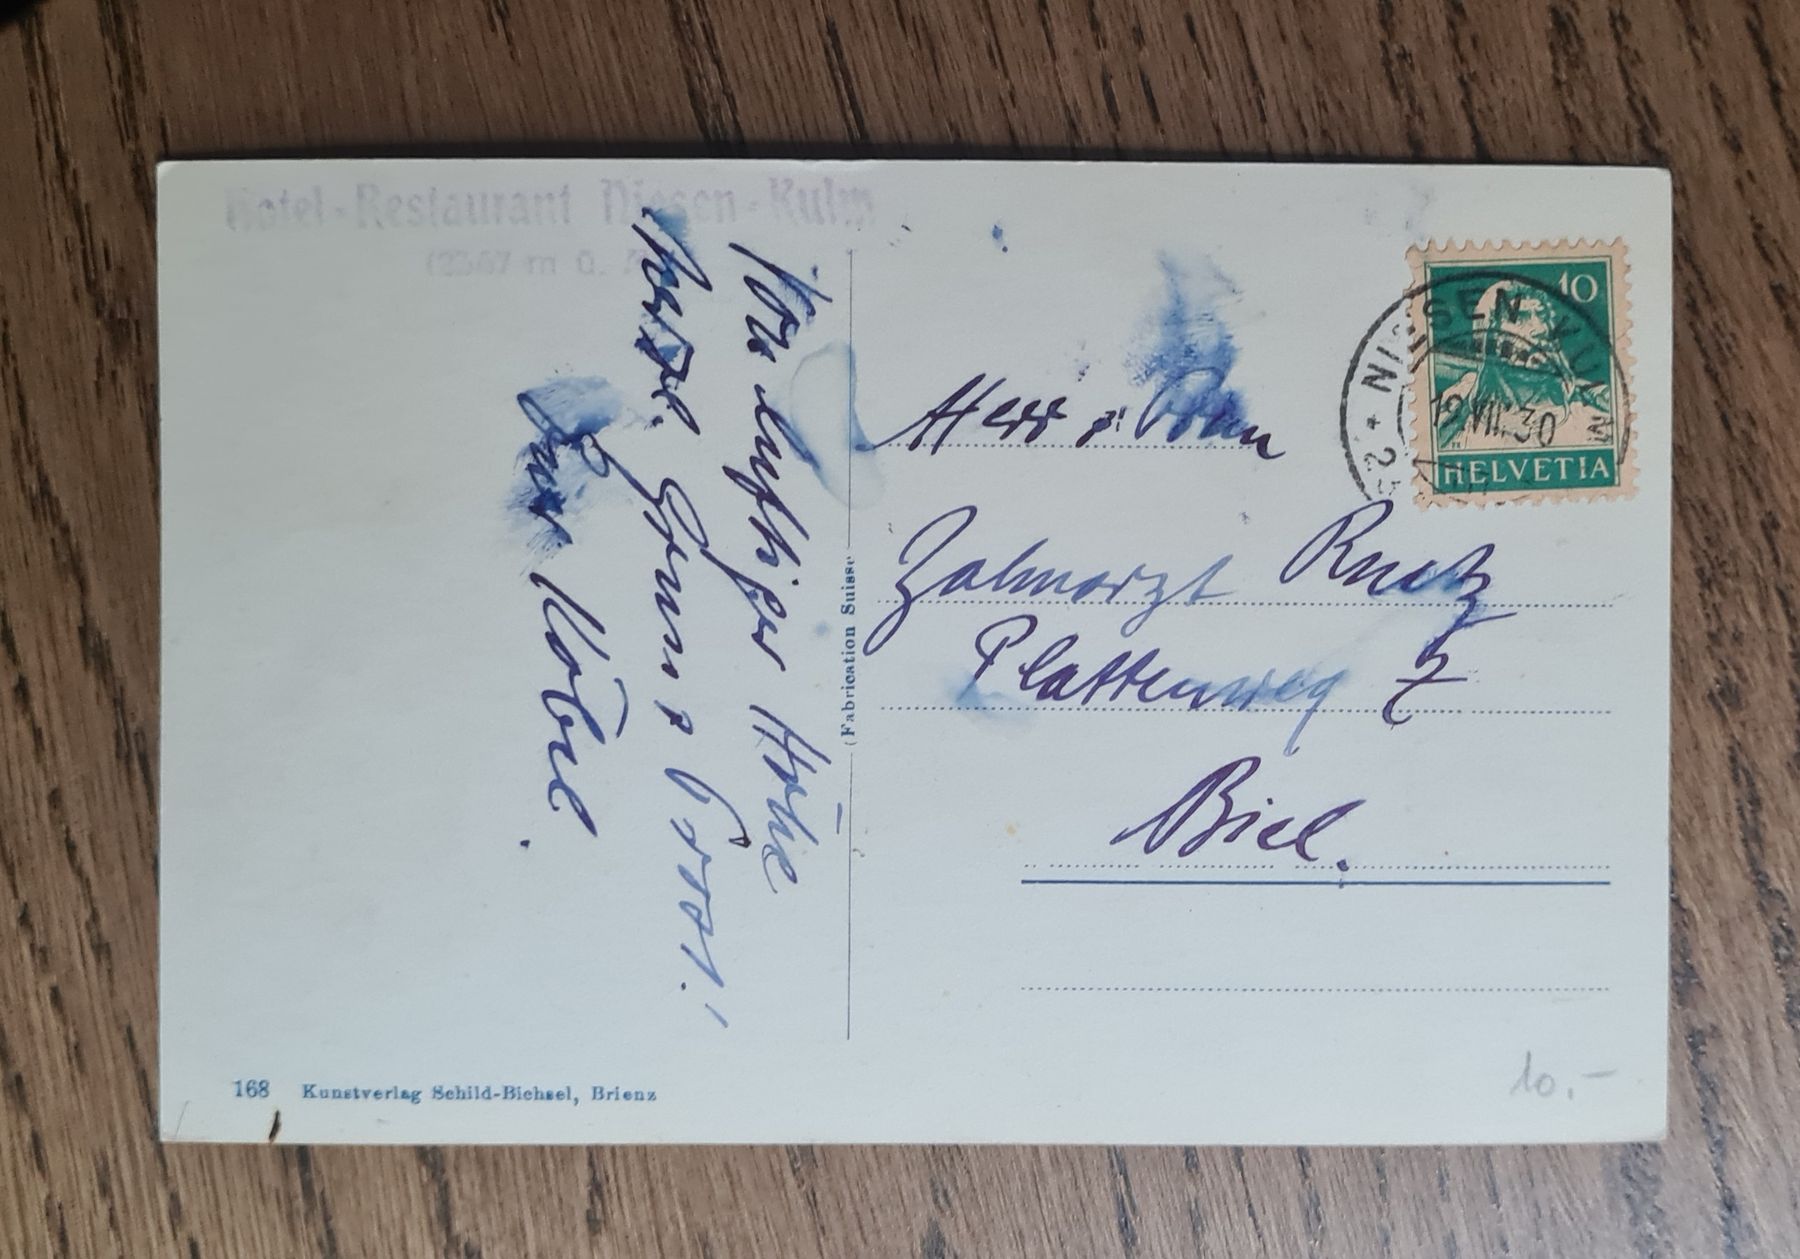 Hotel-Restaurant Niesen-Kulm
(2367 m ü. M
Von luftiger Höhe
herzl. Gruss & Prost!
Euer Köbel.
(Fabrication Suisse)
168 Kunstverlag Schild-Bichsel, Brienz
10
NIESEN KULM
12.VIII.30
HELVETIA
Herr & Frau
Zahnarzt Rutz
Plattenweg 7
Biel.
10.-